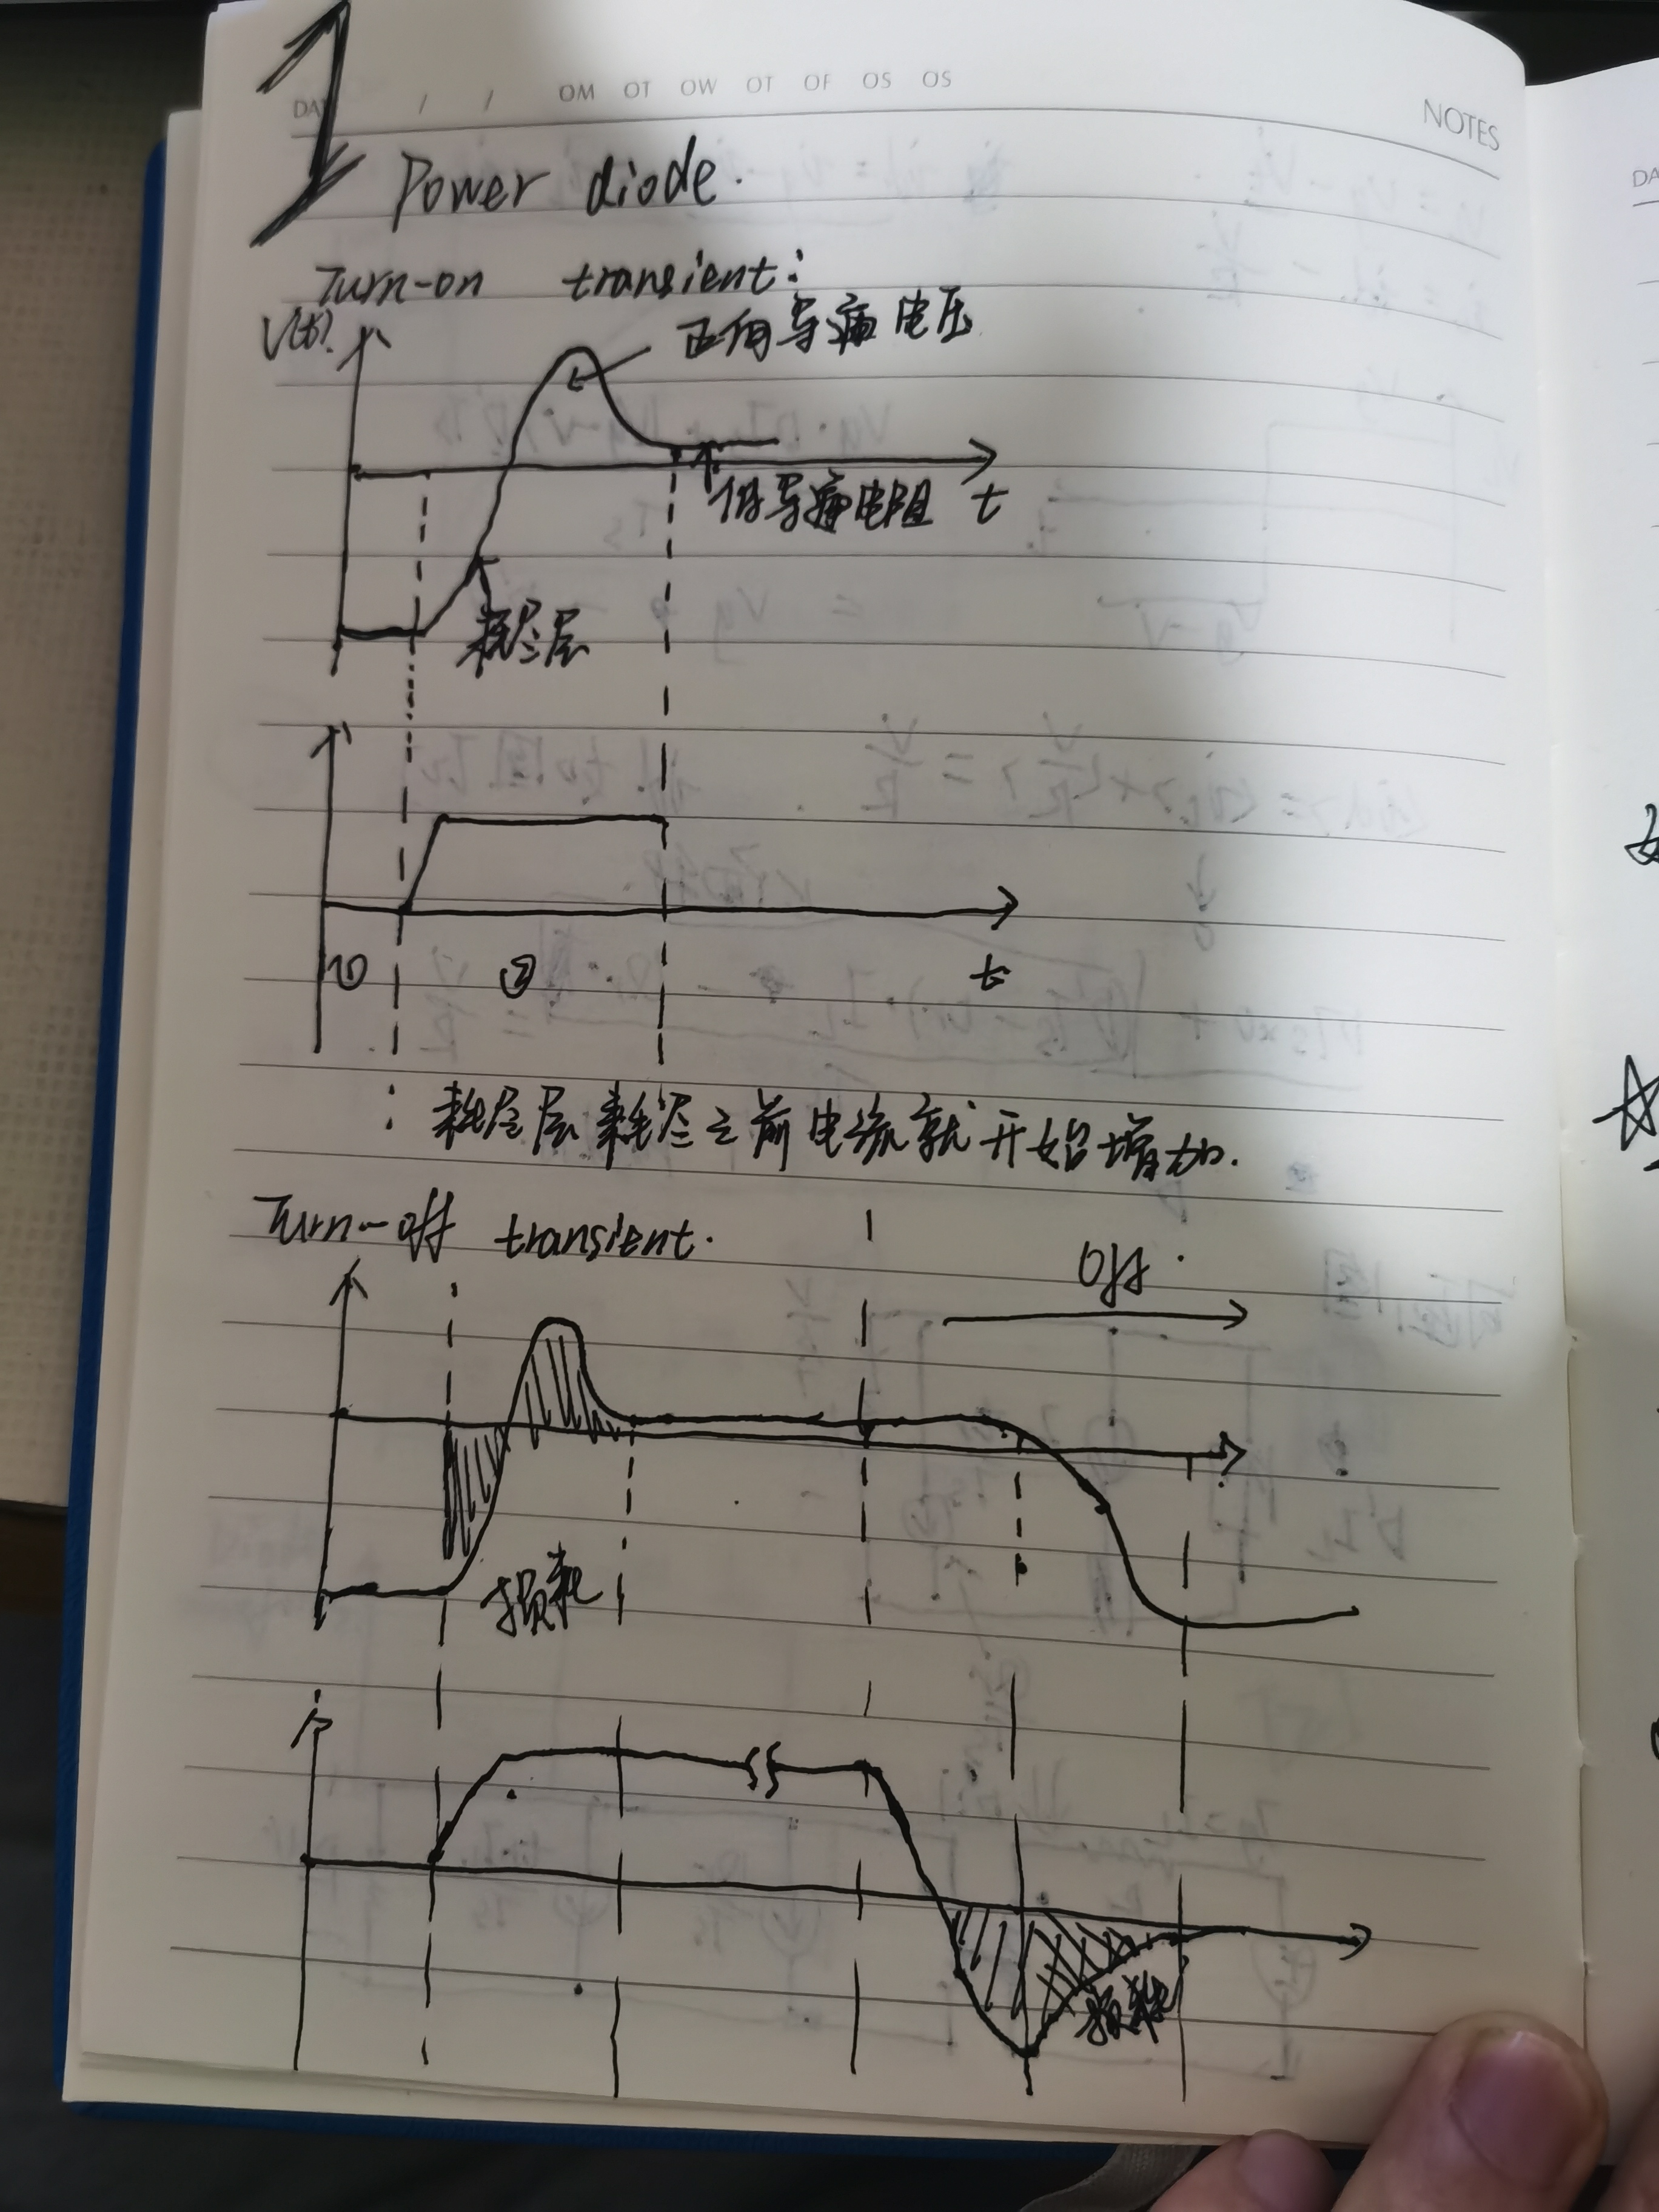 1
DATE / / OM OT OW OT OF OS OS
NOTES
Power diode.
Turn-on transient:
V(t)
正向导通电压
低导通电阻 t
耗尽层
① ② t
: 耗尽层耗尽之前电流就开始增加.
Turn-off transient.
Off.
损耗
i
损耗